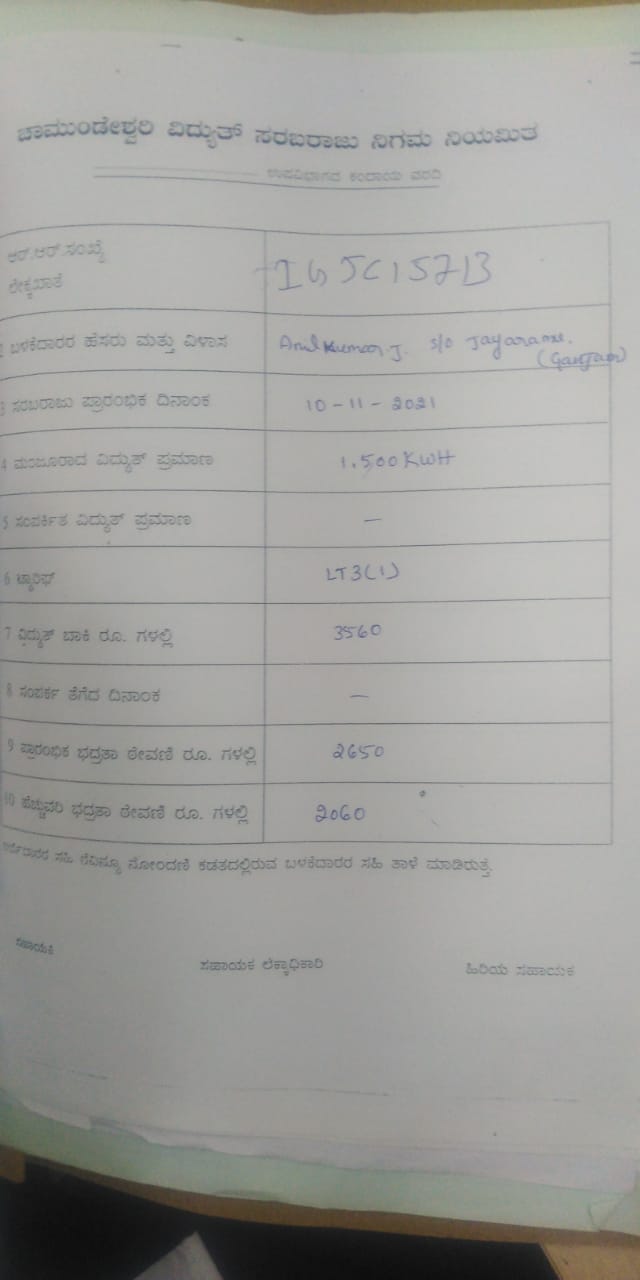 ಚಾಮುಂಡೇಶ್ವರಿ ವಿದ್ಯುತ್ ಸರಬರಾಜು ನಿಗಮ ನಿಯಮಿತ
ಉಪವಿಭಾಗದ ಕಂದಾಯ ವರದಿ
ಆರ್.ಆರ್.ಸಂಖ್ಯೆ
ಲೆಕ್ಕಖಾತೆ
2 ಬಳಕೆದಾರರ ಹೆಸರು ಮತ್ತು ವಿಳಾಸ Anil Kumar.J. S/o Jayarama.
(Ganjam)
3 ಸರಬರಾಜು ಪ್ರಾರಂಭಿಕ ದಿನಾಂಕ 10-11-2021
4 ಮಂಜೂರಾದ ವಿದ್ಯುತ್ ಪ್ರಮಾಣ 1.500 KWH
5 ಸಂಪರ್ಕಿತ ವಿದ್ಯುತ್ ಪ್ರಮಾಣ —
6 ಟ್ಯಾರಿಫ್ LT3(1)
7 ವಿದ್ಯುತ್ ಬಾಕಿ ರೂ. ಗಳಲ್ಲಿ 3560
8 ಸಂಪರ್ಕ ತೆಗೆದ ದಿನಾಂಕ —
9 ಪ್ರಾರಂಭಿಕ ಭದ್ರತಾ ಠೇವಣಿ ರೂ. ಗಳಲ್ಲಿ 2650
10 ಹೆಚ್ಚುವರಿ ಭದ್ರತಾ ಠೇವಣಿ ರೂ. ಗಳಲ್ಲಿ 2060
ಸಹಿ ರೆವಿನ್ಯೂ ನೋಂದಣಿ ಕಡತದಲ್ಲಿರುವ ಬಳಕೆದಾರರ ಸಹಿ ತಾಳೆ ಮಾಡಿರುತ್ತೆ.
ಸಹಾಯಕ
ಸಹಾಯಕ ಲೆಕ್ಕಾಧಿಕಾರಿ
ಹಿರಿಯ ಸಹಾಯಕ